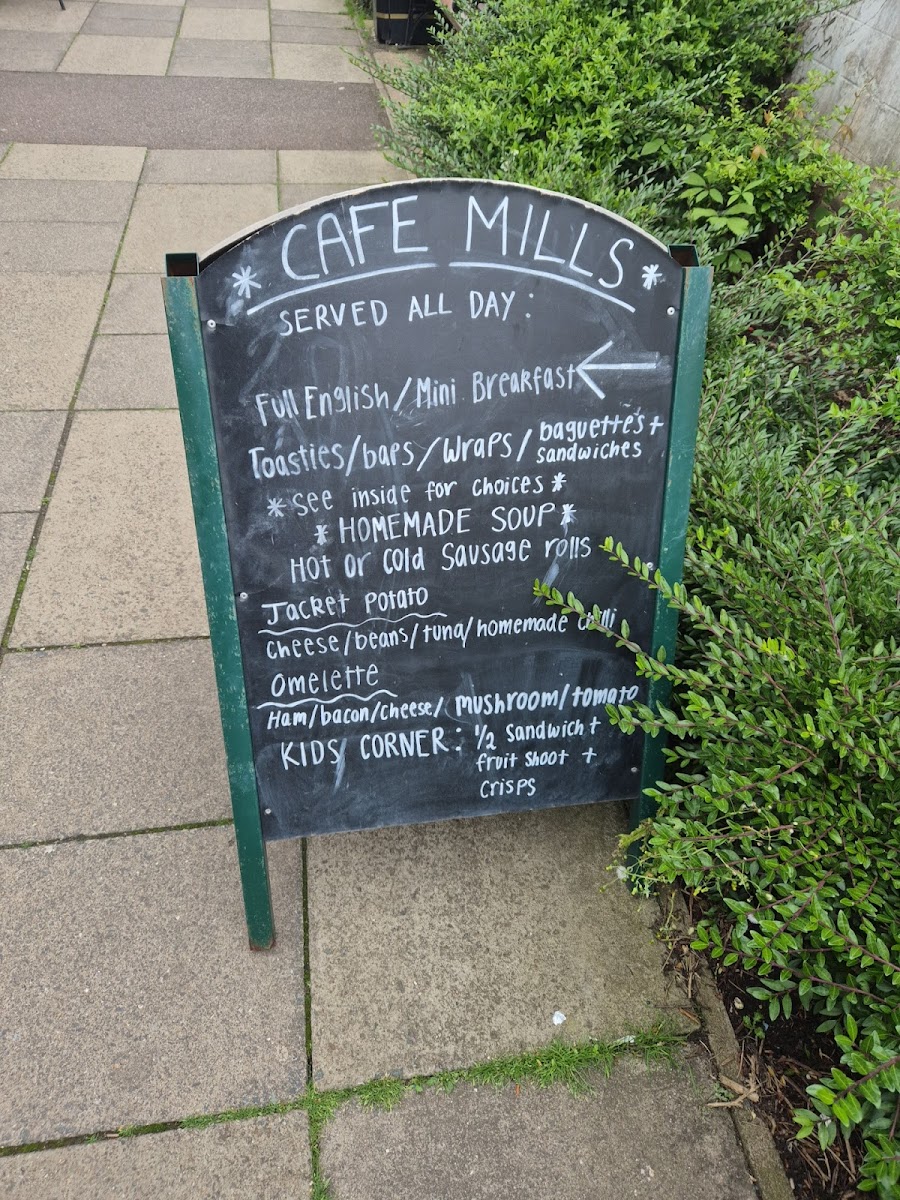 * CAFE MILLS *
SERVED ALL DAY :
Full English/Mini Breakfast ←
Toasties/baps/Wraps/ baguette's +
sandwiches
* See inside for choices *
* HOMEMADE SOUP *
Hot or Cold Sausage rolls
Jacket Potato
Cheese/beans/tuna/homemade chilli
Omelette
Ham/bacon/cheese/ mushroom/tomato
KIDS CORNER: 1/2 Sandwich +
fruit shoot +
crisps